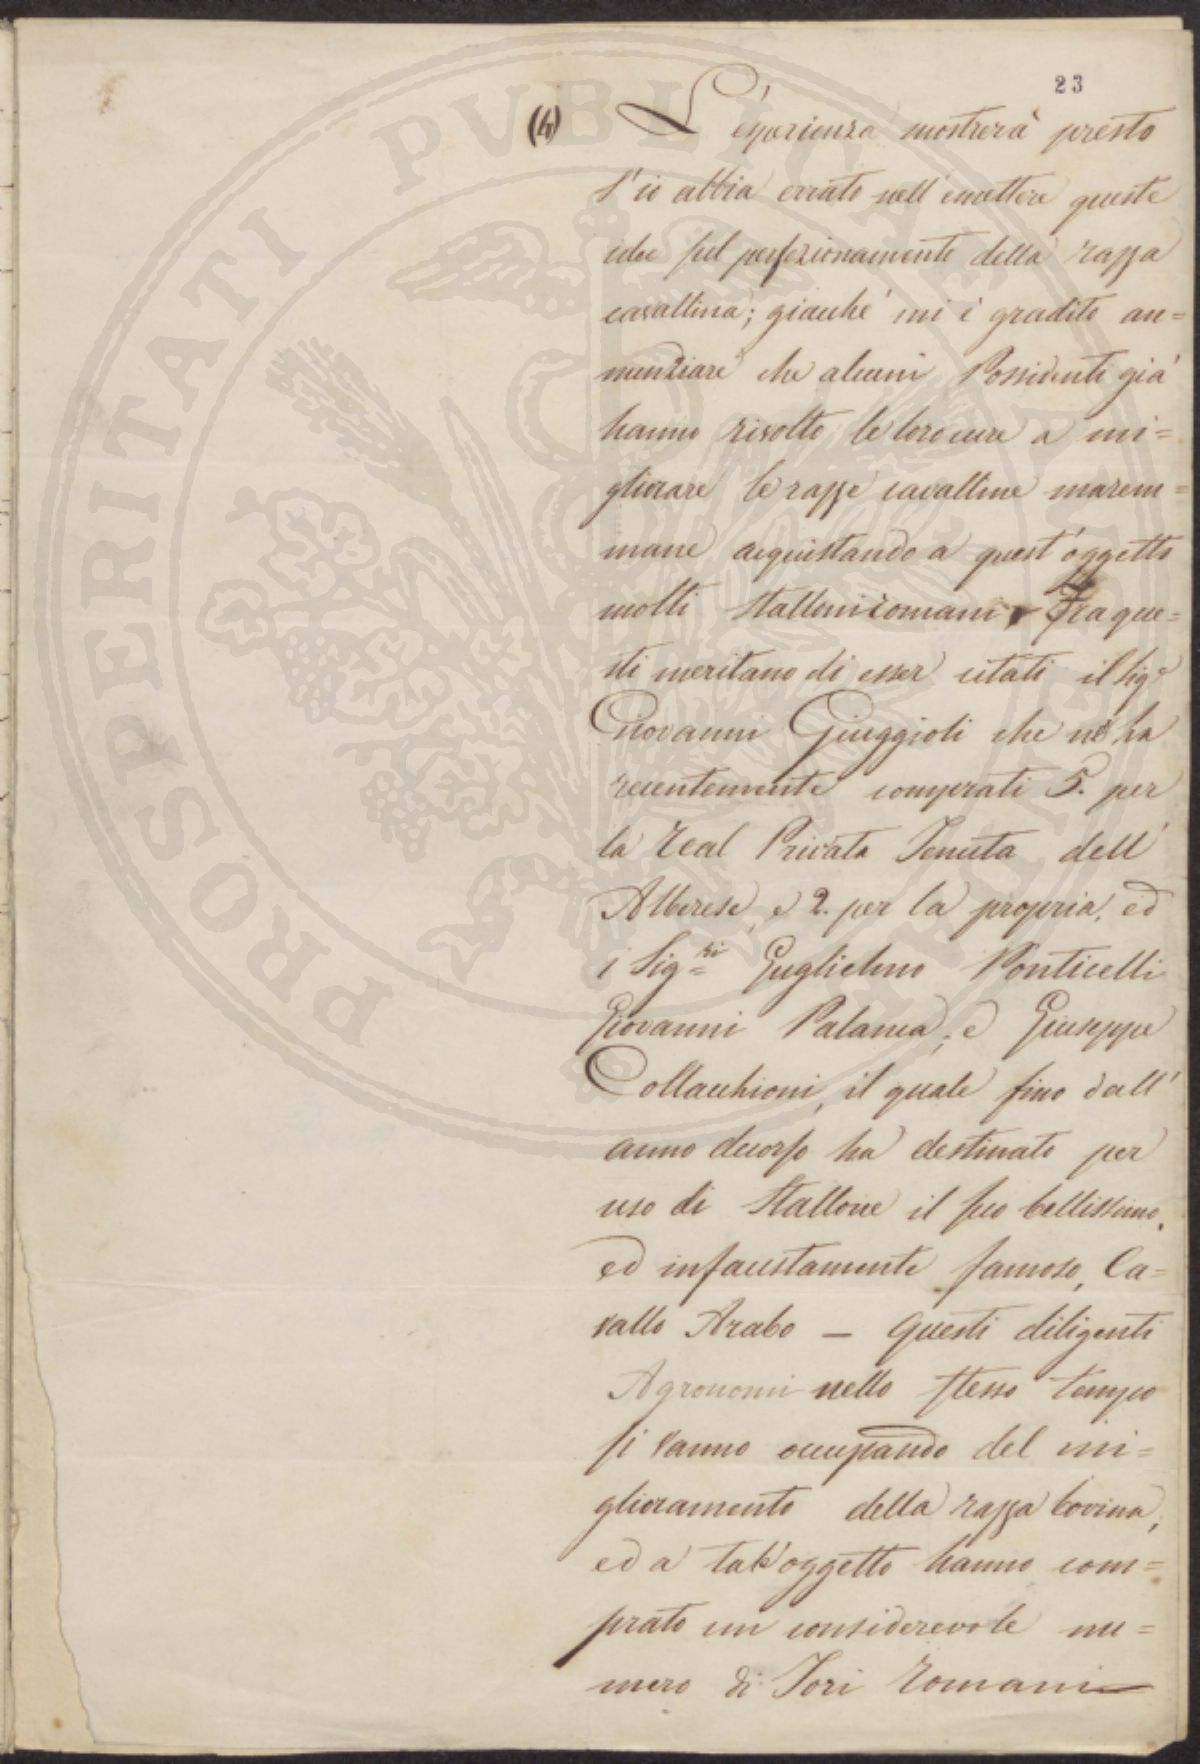 23
(4) L'esperienza mostrerà presto
s'io abbia errato nell'emettere queste
idee sul perfezionamento della razza
cavallina; giacchè mi è gradito an=
nunziare che alcuni Possidenti già
hanno risolto le loro cure a mi=
gliorare le razze cavalline marem=
mane acquistando a quest'oggetto
molti stalloni romani, Fra que=
sti meritano di esser citati il Sigre
Giovanni Giuggioli che ne ha
recentemente comprati 5. per
la Real Privata Tenuta dell'
Alberese, e 2. per la propria, ed
i Sigri Guglielmo Ponticelli
Giovanni Palanca, e Giuseppe
Collacchioni, il quale fino dall'
anno decorso ha destinato per
uso di Stallone il suo bellissimo,
ed infaustamente famoso, Ca=
vallo Arabo — Questi diligenti
Agronomi nello stesso tempo
si vanno occupando del mi=
glioramento della razza bovina,
ed a tal'oggetto hanno com=
prato un considerevole nu=
mero di Tori Romani—
PROSPERITATI PUBLICAE AUGENDAE